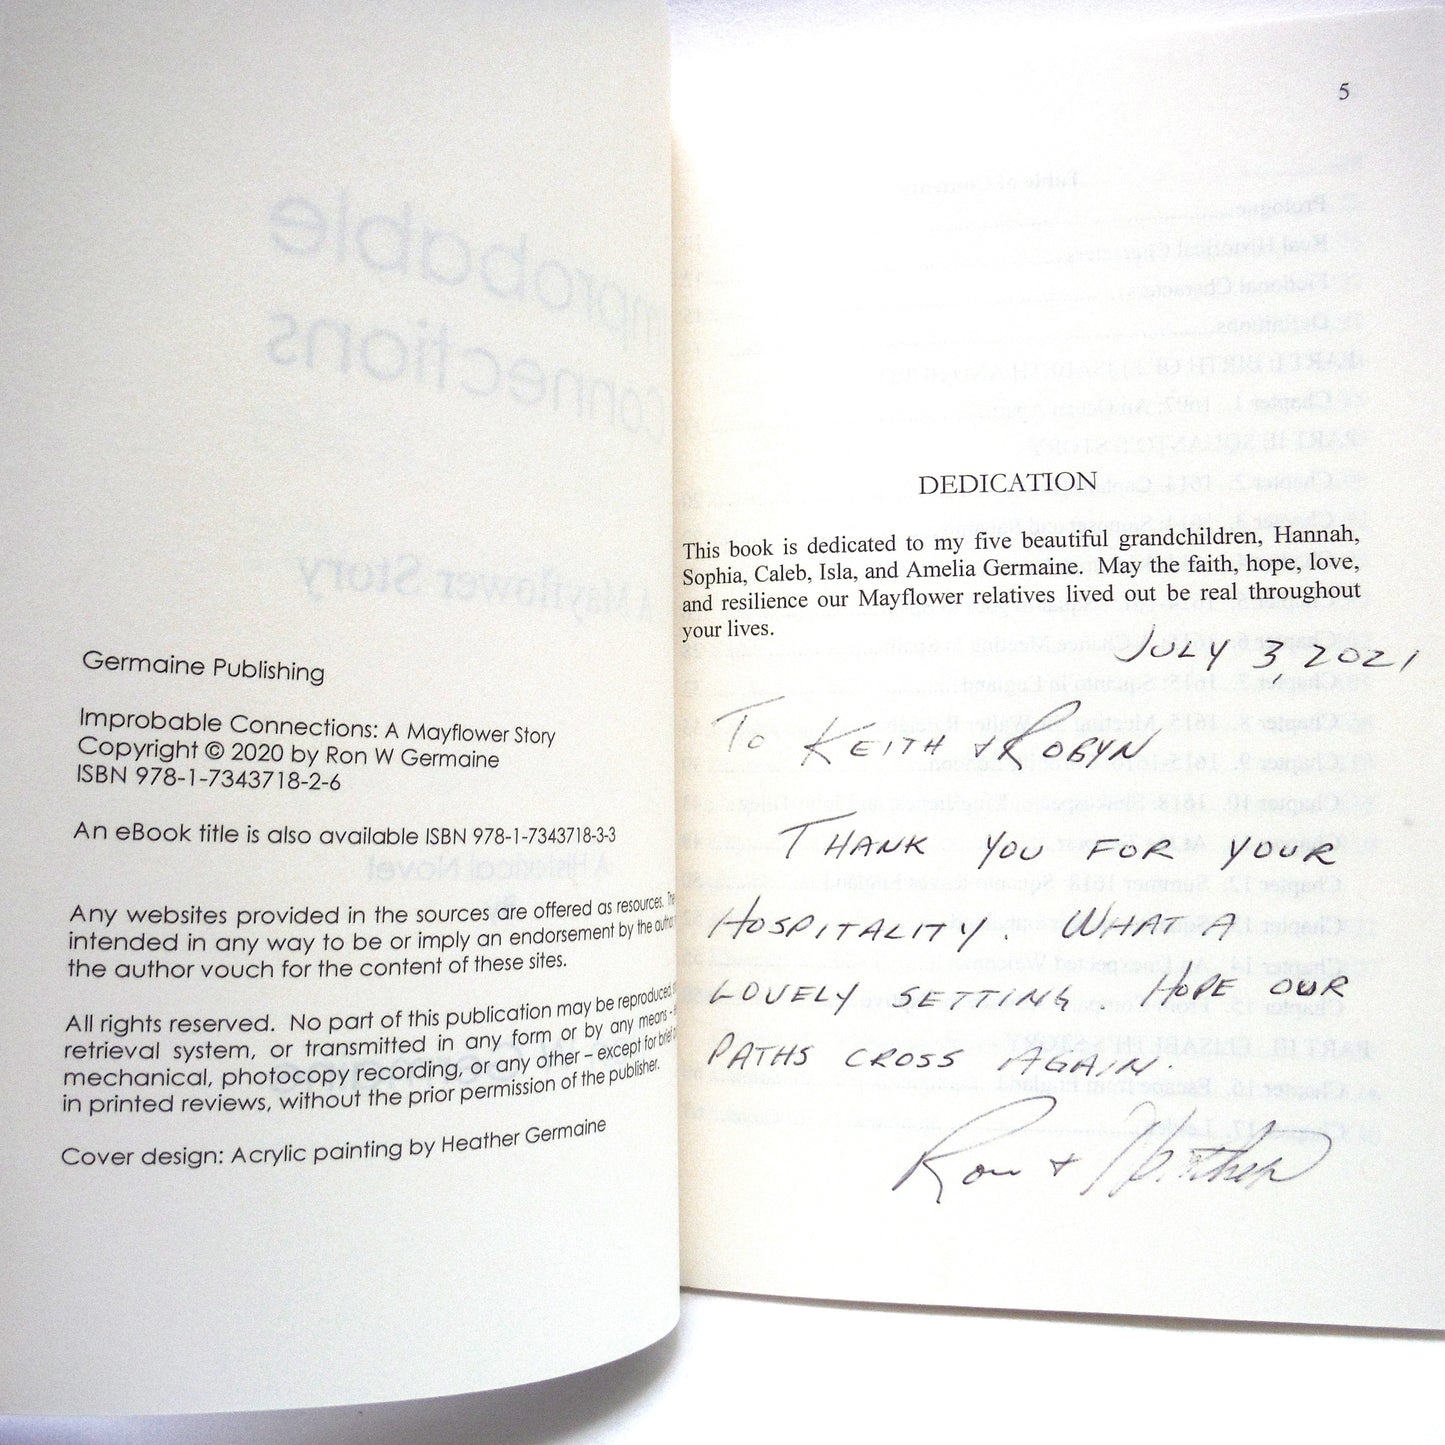 Germaine Publishing
Improbable Connections: A Mayflower Story
Copyright © 2020 by Ron W Germaine
ISBN 978-1-7343718-2-6
An eBook title is also available ISBN 978-1-7343718-3-3
Any websites provided in the sources are offered as resources.
intended in any way to be or imply an endorsement by the
the author vouch for the content of these sites.
All rights reserved. No part of this publication may be reproduced,
retrieval system, or transmitted in any form or by any means -
mechanical, photocopy recording, or any other – except for brief
in printed reviews, without the prior permission of the publisher.
Cover design: Acrylic painting by Heather Germaine
5
DEDICATION
This book is dedicated to my five beautiful grandchildren, Hannah,
Sophia, Caleb, Isla, and Amelia Germaine. May the faith, hope, love,
and resilience our Mayflower relatives lived out be real throughout
your lives.
JULY 3, 2021
To KEITH + ROBYN
THANK YOU FOR YOUR
HOSPITALITY. WHAT A
LOVELY SETTING. HOPE OUR
PATHS CROSS AGAIN.
Ron + Heather